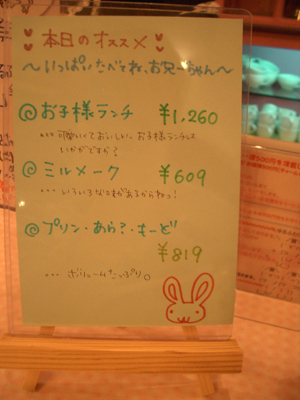 本日のオススメ
〜いっぱいたべてね、お兄ーちゃん〜
@お子様ランチ ¥1,260
…可愛いくておいしい、お子様ランチは
いかがですか?
@ミルメーク ¥609
…いろいろな味があるからねっ!
@プリン・あら?・もーど
¥819
…ボリュームたっぷり。